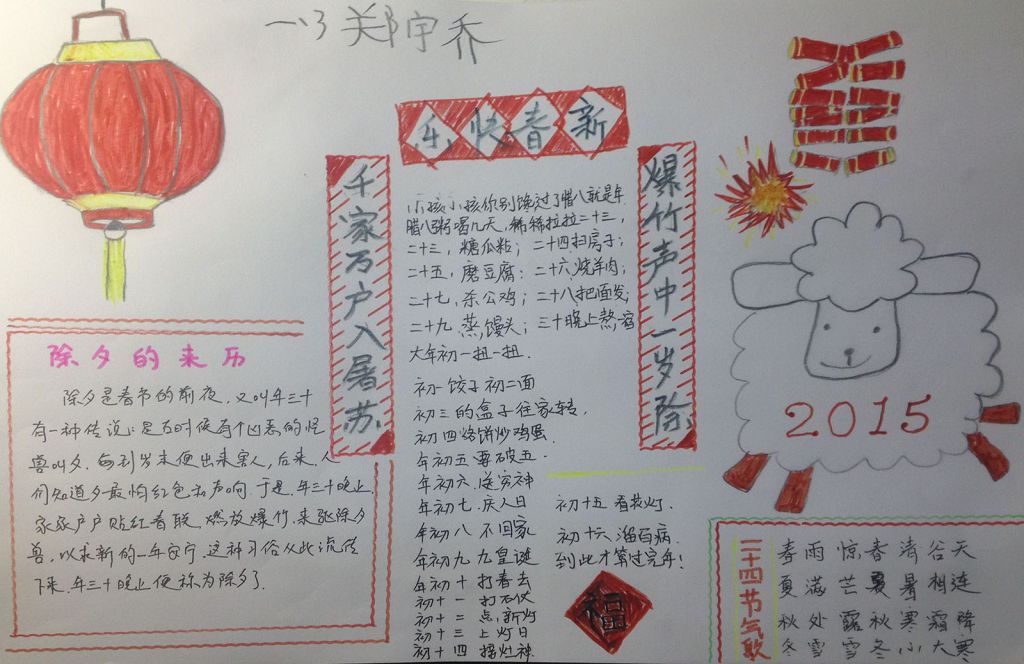 一13 郑宇乔
乐快春新
千家万户入屠苏
爆竹声中一岁除
小孩小孩你别馋过了腊八就是年
腊八粥喝几天,稀稀拉拉二十三,
二十三,糖瓜粘;二十四扫房子;
二十五,磨豆腐:二十六烧羊肉;
二十七,杀公鸡;二十八把面发;
二十九,蒸馒头;三十晚上熬一宿
大年初一扭一扭.
初一饺子初二面
初三的盒子往家转,
初四烙饼炒鸡蛋.
年初五要破五.
年初六.送穷神
年初七.庆人日
年初八 不回家
年初九 九皇诞
年初十 打春去
初十一 打石仗
初十二 点,新灯
初十三 上灯日
初十四 探灶神
初十五 看花灯.
初十六 溜百病.
到此才算过完年!
福
除夕的来历
除夕是春节的前夜,又叫年三十
有一种传说:是古时候有个凶恶的怪
兽叫夕.每到岁末便出来害人,后来,人
们知道夕最怕红色和声响.于是.年三十晚上.
家家户户贴红春联,燃放爆竹,来驱除夕
兽,以求新的一年安宁.这种习俗从此流传
下来.年三十晚上便称为除夕了.
2015
二十四节气歌
春雨惊春清谷天
夏满芒夏暑相连
秋处露秋寒霜降
冬雪雪冬小大寒